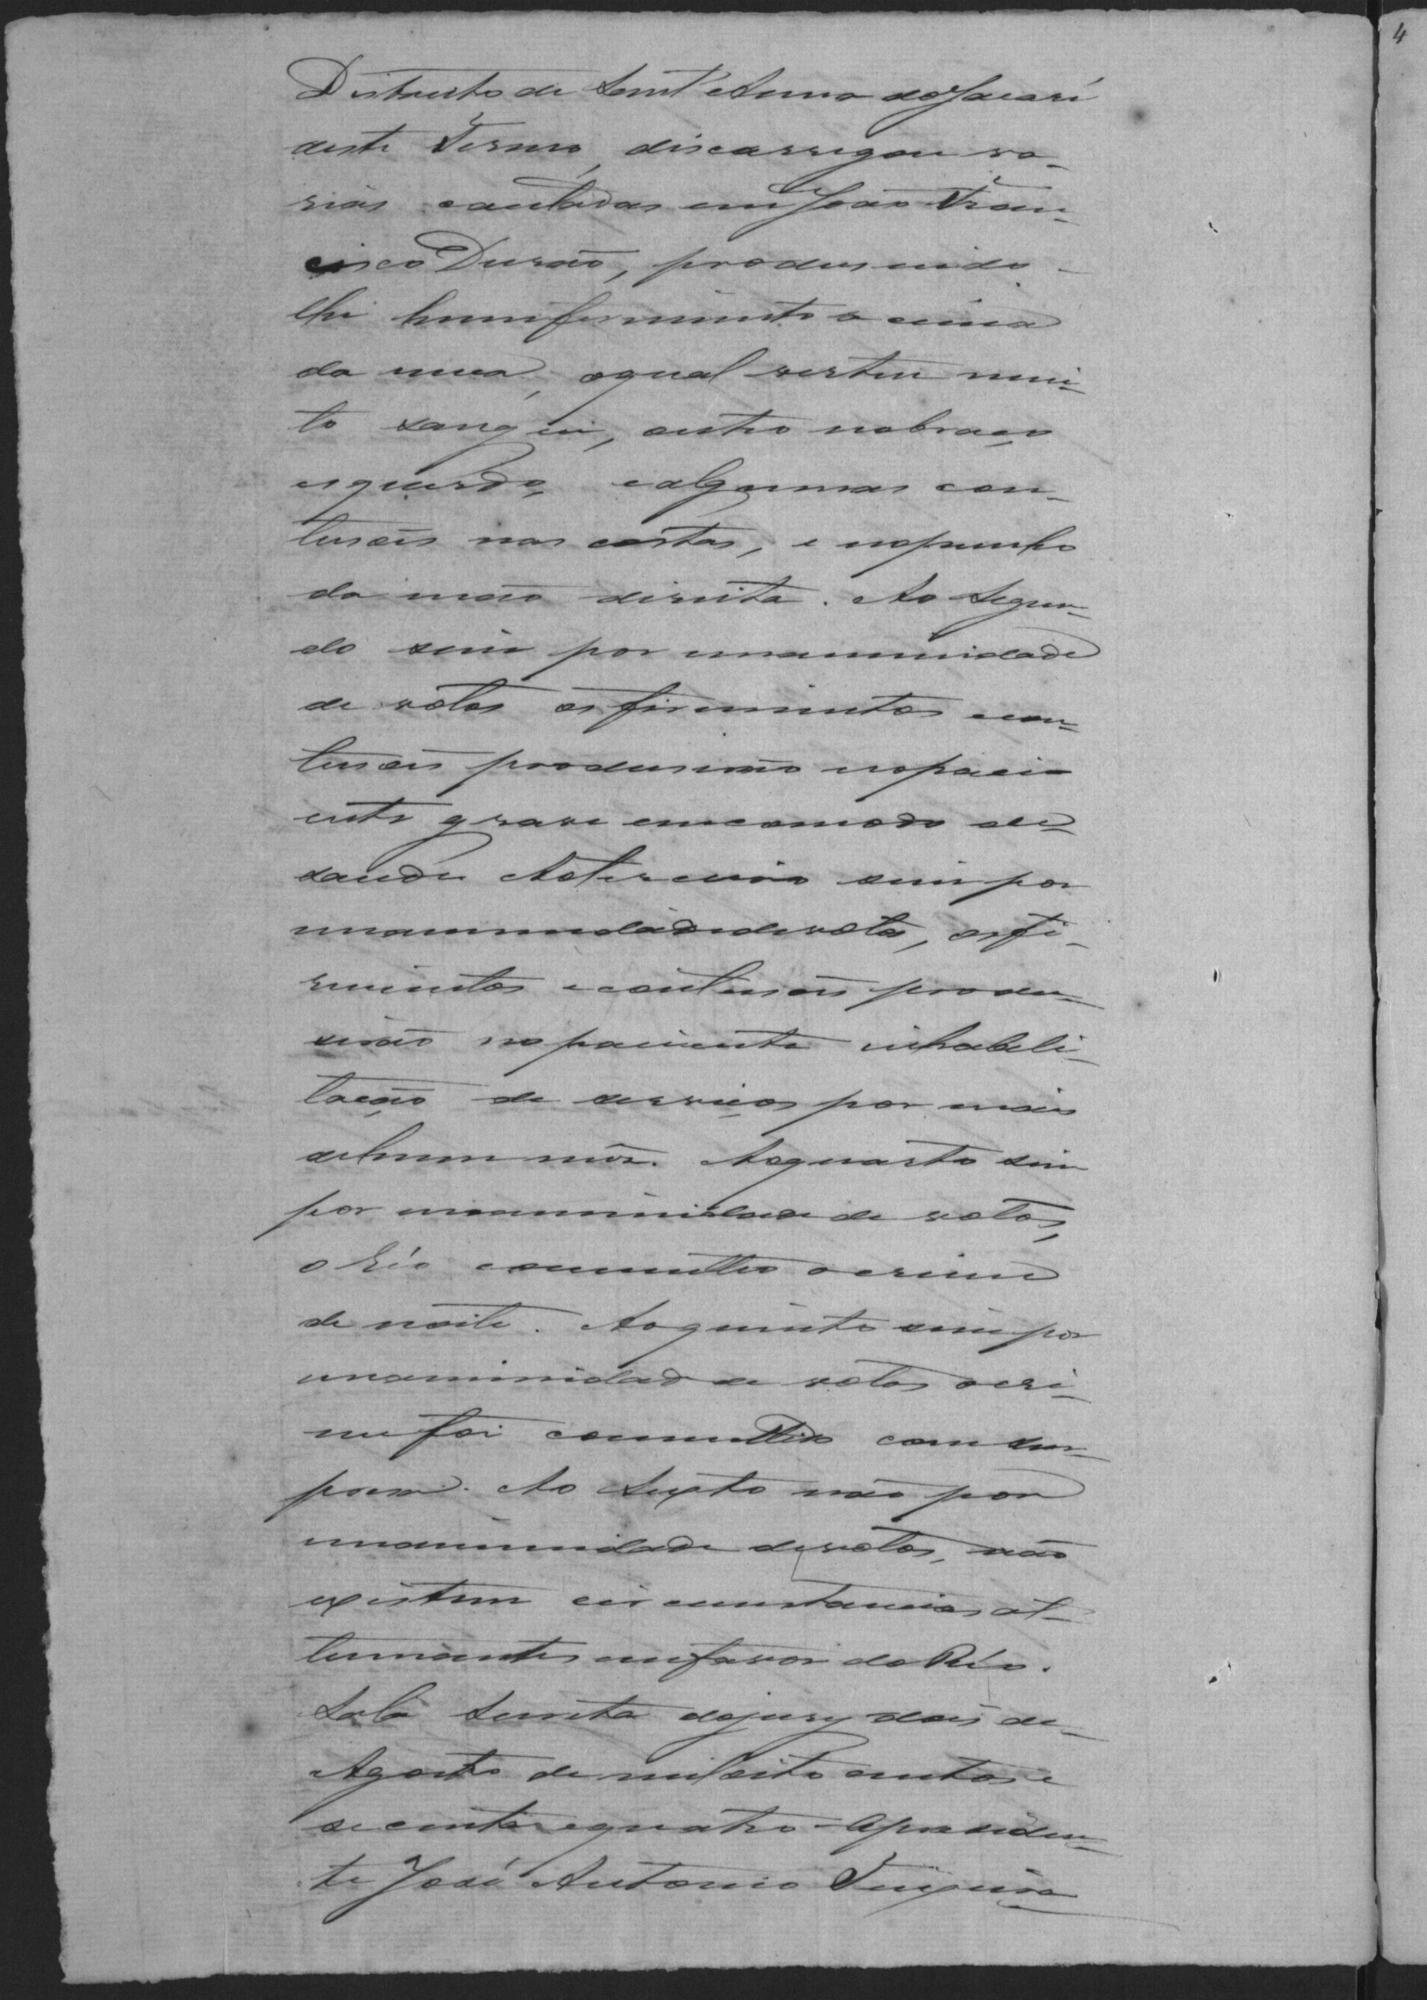 Districto de Sant'Anna do Jacaré
deste Termo, discarregou va-
rias cacetadas em João Fran-
cisco Durão, produsindo-
lhe hum ferimento a cima
da nuca, o qual verteu mui-
to sangue, outro no braço
esquerdo, e algumas con-
tusões nas costas, e no punho
da mão direita. Ao Segun-
do sim por unanimidade
de votos os ferimentos e con-
tusões produsirão no paci-
ente grave encommodo de
saude. Ao terceiro sim por
unanimidade de votos, os fe-
rimentos e contusões produ-
sirão no paciente inhabili-
tação de serviços por mais
de hum mês. Ao quarto sim
por unanimidade de votos,
o Réo commetteo o crime
de noite. Ao quinto sim por
unanimidade de votos o cri-
me foi commettido com sur-
presa. Ao Sexto não por
unanimidade de votos, não
existem circumstancias at-
tenuantes em favor do Réo.
Sala Secreta do jury dois de
Agosto de mil oito centos e
secenta e quatro - O presiden-
te José Antonio Teixeira
4